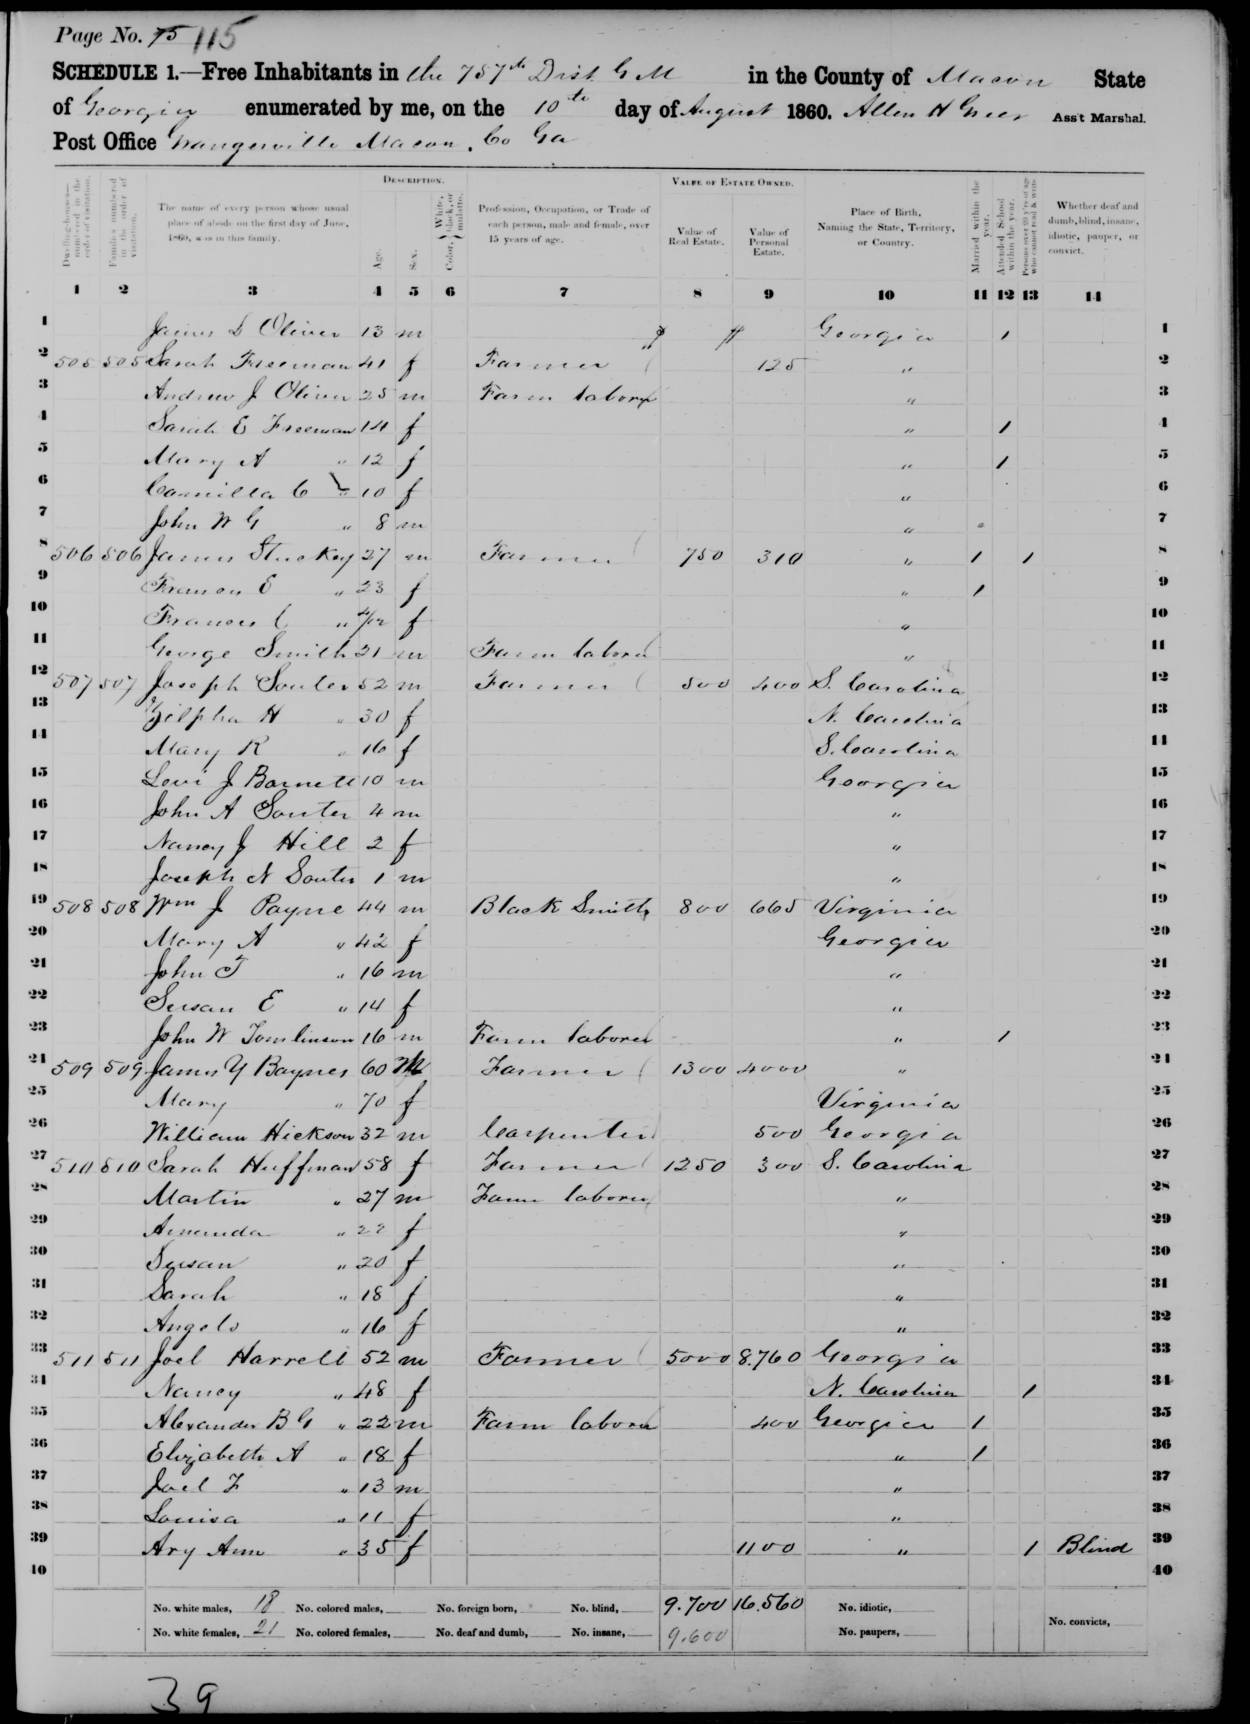 Page No. 75 115
SCHEDULE 1.—Free Inhabitants in the 757th Dist G M in the County of Macon State
of Georgia enumerated by me, on the 10th day of August 1860. Allen H Greer Ass't Marshal.
Post Office Grangerville Macon Co Ga
DESCRIPTION. VALUE OF ESTATE OWNED.
Dwelling-houses—numbered in the order of visitation.
Families numbered in the order of visitation.
The name of every person whose usual place of abode on the first day of June, 1860, was in this family.
Age. Sex. Color, White, black, or mulatto.
Profession, Occupation, or Trade of each person, male and female, over 15 years of age.
Value of Real Estate. Value of Personal Estate.
Place of Birth, Naming the State, Territory, or Country.
Married within the year. Attended School within the year. Persons over 20 y'rs of age who cannot read & write.
Whether deaf and dumb, blind, insane, idiotic, pauper, or convict.
1 2 3 4 5 6 7 8 9 10 11 12 13 14
1 James D Oliver 13 m Georgia 1 1
2 505 505 Sarah Freeman 41 f Farmer 125 " 2
3 Andrew J Oliver 25 m Farm laborer " 3
4 Sarah E Freeman 14 f " 1 4
5 Mary A " 12 f " 1 5
6 Camilla C " 10 f " 6
7 John W G " 8 m " 7
8 506 506 James Stuckey 27 m Farmer 750 310 " 1 1 8
9 E " 23 f " 1 9
10 Frances C " 4/12 f " 10
11 George Smith 21 m Farm laborer " 11
12 507 507 Joseph Souter 52 m Farmer 500 400 S. Carolina 12
13 Zilpha H " 30 f N. Carolina 13
14 Mary R " 16 f S. Carolina 14
15 Levi J Barnett 10 m Georgia 15
16 John A Souter 4 m " 16
17 Nancy J Hill 2 f " 17
18 Joseph N Souter 1 m " 18
19 508 508 Wm J Payne 44 m Black Smith 800 665 Virginia 19
20 Mary A " 42 f Georgia 20
21 John T " 16 m " 21
22 Susan E " 14 f " 22
23 John W Tomlinson 16 m Farm laborer " 1 23
24 509 509 James Y Baynes 60 M Farmer 1300 4000 " 24
25 Mary " 70 f Virginia 25
26 William Hickson 32 m Carpenter 500 Georgia 26
27 510 510 Sarah Huffman 58 f Farmer 1250 300 S. Carolina 27
28 Martin " 27 m Farm laborer " 28
29 Amanda " 22 f " 29
30 Susan " 20 f " 30
31 Sarah " 18 f " 31
32 Angelo " 16 f " 32
33 511 511 Joel Harrell 52 m Farmer 5000 8.760 Georgia 33
34 Nancy " 48 f N. Carolina 1 34
35 Alexander B G " 22 m Farm laborer 400 Georgia 1 35
36 Elizabeth A " 18 f " 1 36
37 Joel F " 13 m " 37
38 Louisa " 11 f " 38
39 Ary Ann " 35 f 1100 " 1 Blind 39
40 40
No. white males, 18 No. colored males, No. foreign born, No. blind, 9.700 16.560 No. idiotic,
No. white females, 21 No. colored females, No. deaf and dumb, No. insane, 9.600 No. paupers, No. convicts,
39